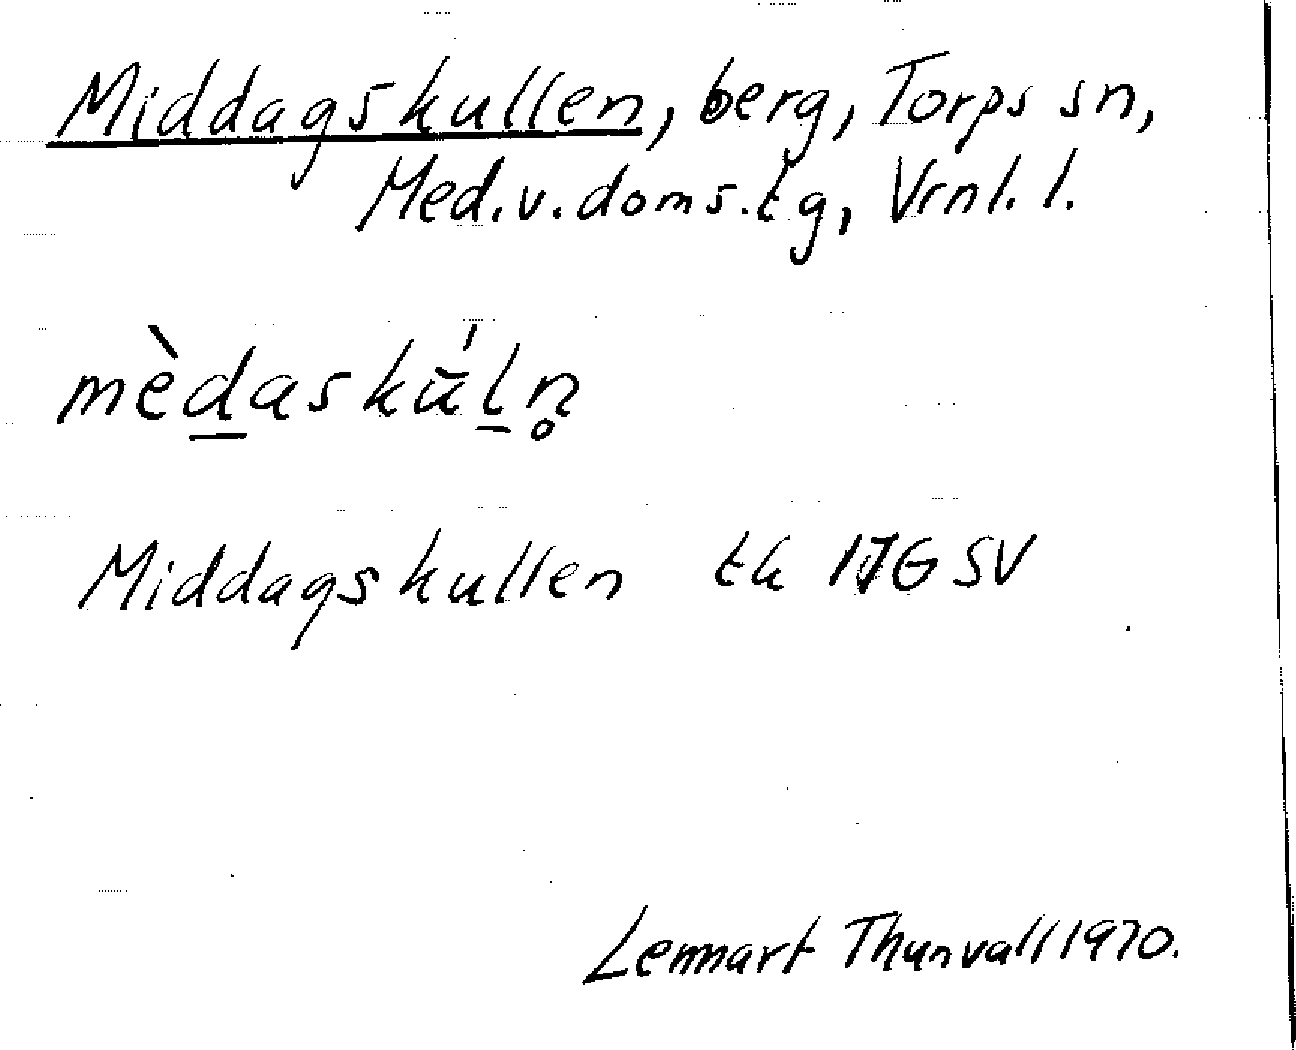 Middagskullen, berg, Torps sn,
Med.v.doms.tg, Vrnl. l.
mèd̲askū́l̲n̥
Middagskullen tk 17G SV
Lennart Thunvall 1970.